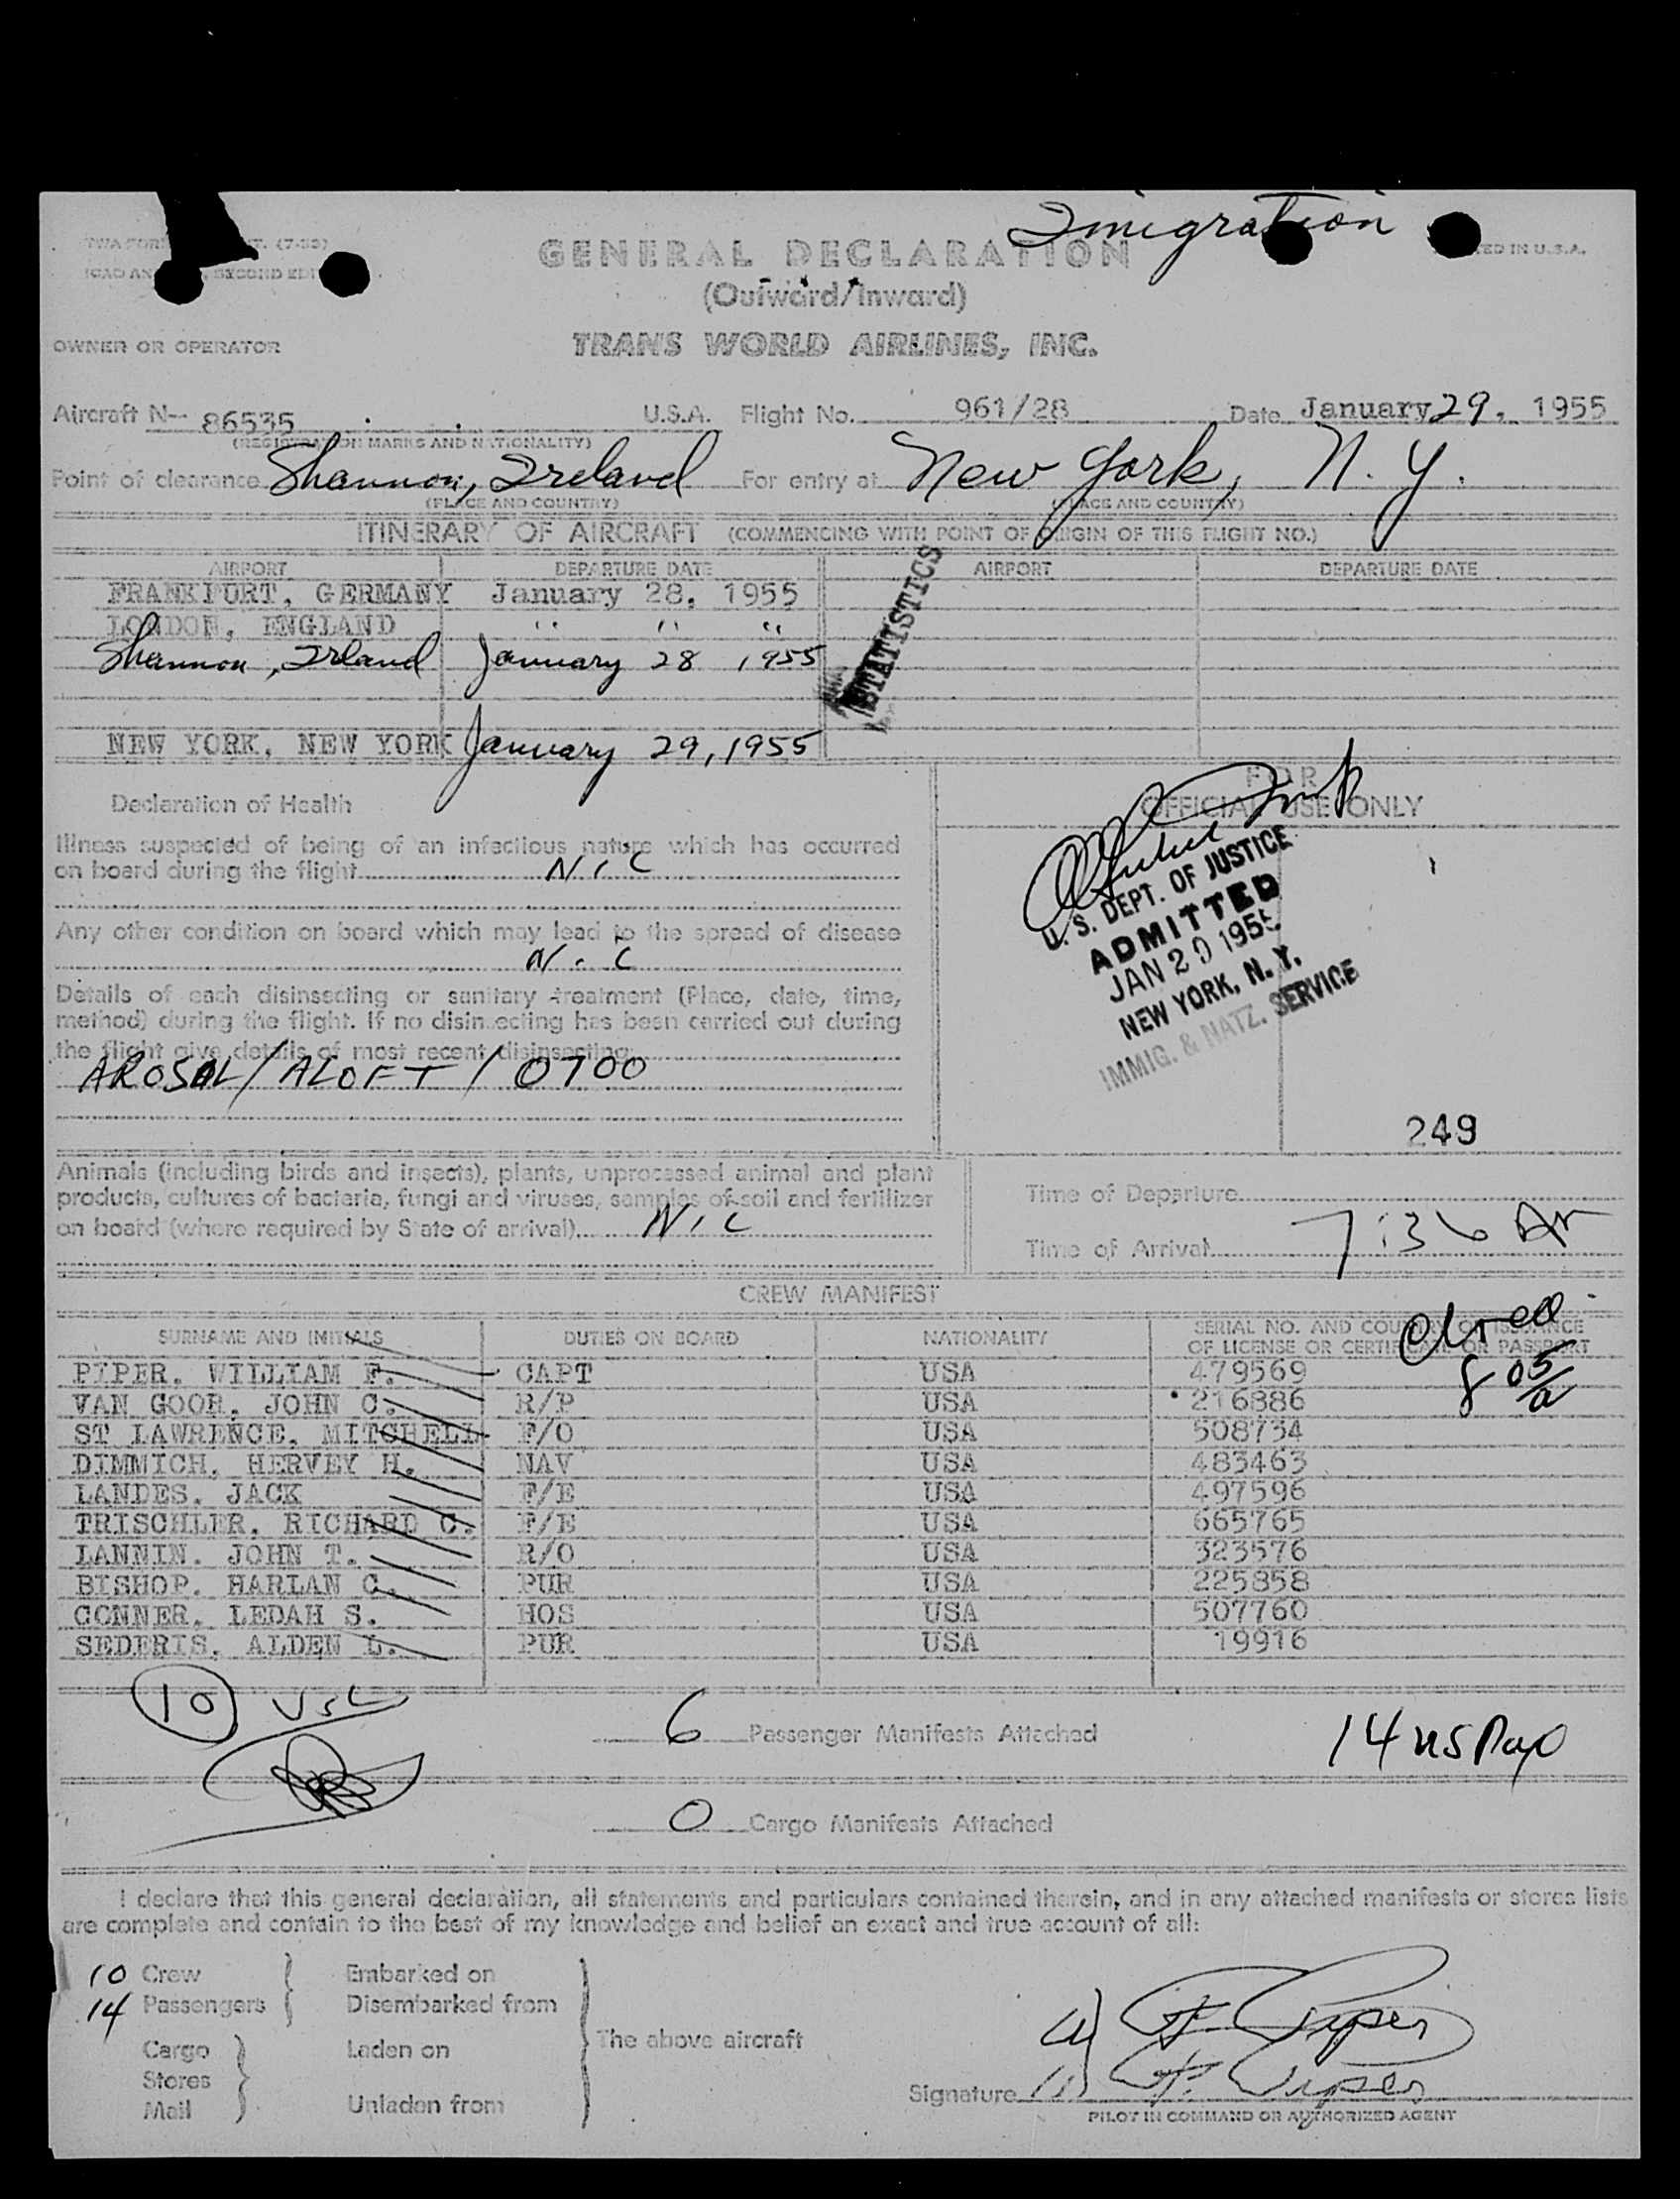 Imigration
TWA FORM T. (7-53)
ICAO AN SECOND EDI
ED IN U.S.A.
GENERAL DECLARATION
(Outward/Inward)
OWNER OR OPERATOR
TRANS WORLD AIRLINES, INC.
Aircraft N- 86535 U.S.A. Flight No. 961/28 Date January 29, 1955
(REGISTRATION MARKS AND NATIONALITY)
Point of clearance Shannon, Ireland For entry at New York, N. Y.
(PLACE AND COUNTRY) (PLACE AND COUNTRY)
ITINERARY OF AIRCRAFT (COMMENCING WITH POINT OF ORIGIN OF THIS FLIGHT NO.)
AIRPORT DEPARTURE DATE AIRPORT DEPARTURE DATE
FRANKFURT, GERMANY January 28, 1955
LONDON, ENGLAND " " "
Shannon, Irland January 28 1955
STATISTICS
NEW YORK, NEW YORK January 29, 1955
Declaration of Health
FOR
OFFICIAL USE ONLY
Illness suspected of being of an infectious nature which has occurred
on board during the flight N I L
Any other condition on board which may lead to the spread of disease
N I L
Details of each disinsecting or sanitary treatment (Place, date, time,
method) during the flight. If no disinsecting has been carried out during
the flight give details of most recent disinsecting:
AROSOL / ALOFT / 0700
U. S. DEPT. OF JUSTICE
ADMITTED
JAN 29 1955
NEW YORK, N. Y.
IMMIG. & NATZ. SERVICE
249
Animals (including birds and insects), plants, unprocessed animal and plant
products, cultures of bacteria, fungi and viruses, samples of soil and fertilizer
on board (where required by State of arrival) N I L
Time of Departure
Time of Arrival 7:36 Am
CREW MANIFEST
SURNAME AND INITIALS DUTIES ON BOARD NATIONALITY SERIAL NO. AND COUNTRY OF ISSUANCE
OF LICENSE OR CERTIFICATE OR PASSPORT
8 05/a
PIPER, WILLIAM F. CAPT USA 479569
VAN GOOR, JOHN C. R/P USA 216886
ST LAWRENCE, MITCHELL F/O USA 508734
DIMMICH, HERVEY H. NAV USA 483463
LANDES, JACK F/E USA 497596
TRISCHLER, RICHARD C. F/E USA 665765
LANNIN, JOHN T. R/O USA 323576
BISHOP, HARLAN C. PUR USA 225858
CONNER, LEDAH S. HOS USA 507760
SEDERIS, ALDEN L. PUR USA 19916
10 USC
6 Passenger Manifests Attached
14 US Pap
0 Cargo Manifests Attached
I declare that this general declaration, all statements and particulars contained therein, and in any attached manifests or stores lists
are complete and contain to the best of my knowledge and belief an exact and true account of all:
10 Crew Embarked on
14 Passengers Disembarked from
The above aircraft
Cargo Laden on
Stores
Mail Unladen from
W. F. Piper
Signature W. F. Piper
PILOT IN COMMAND OR AUTHORIZED AGENT